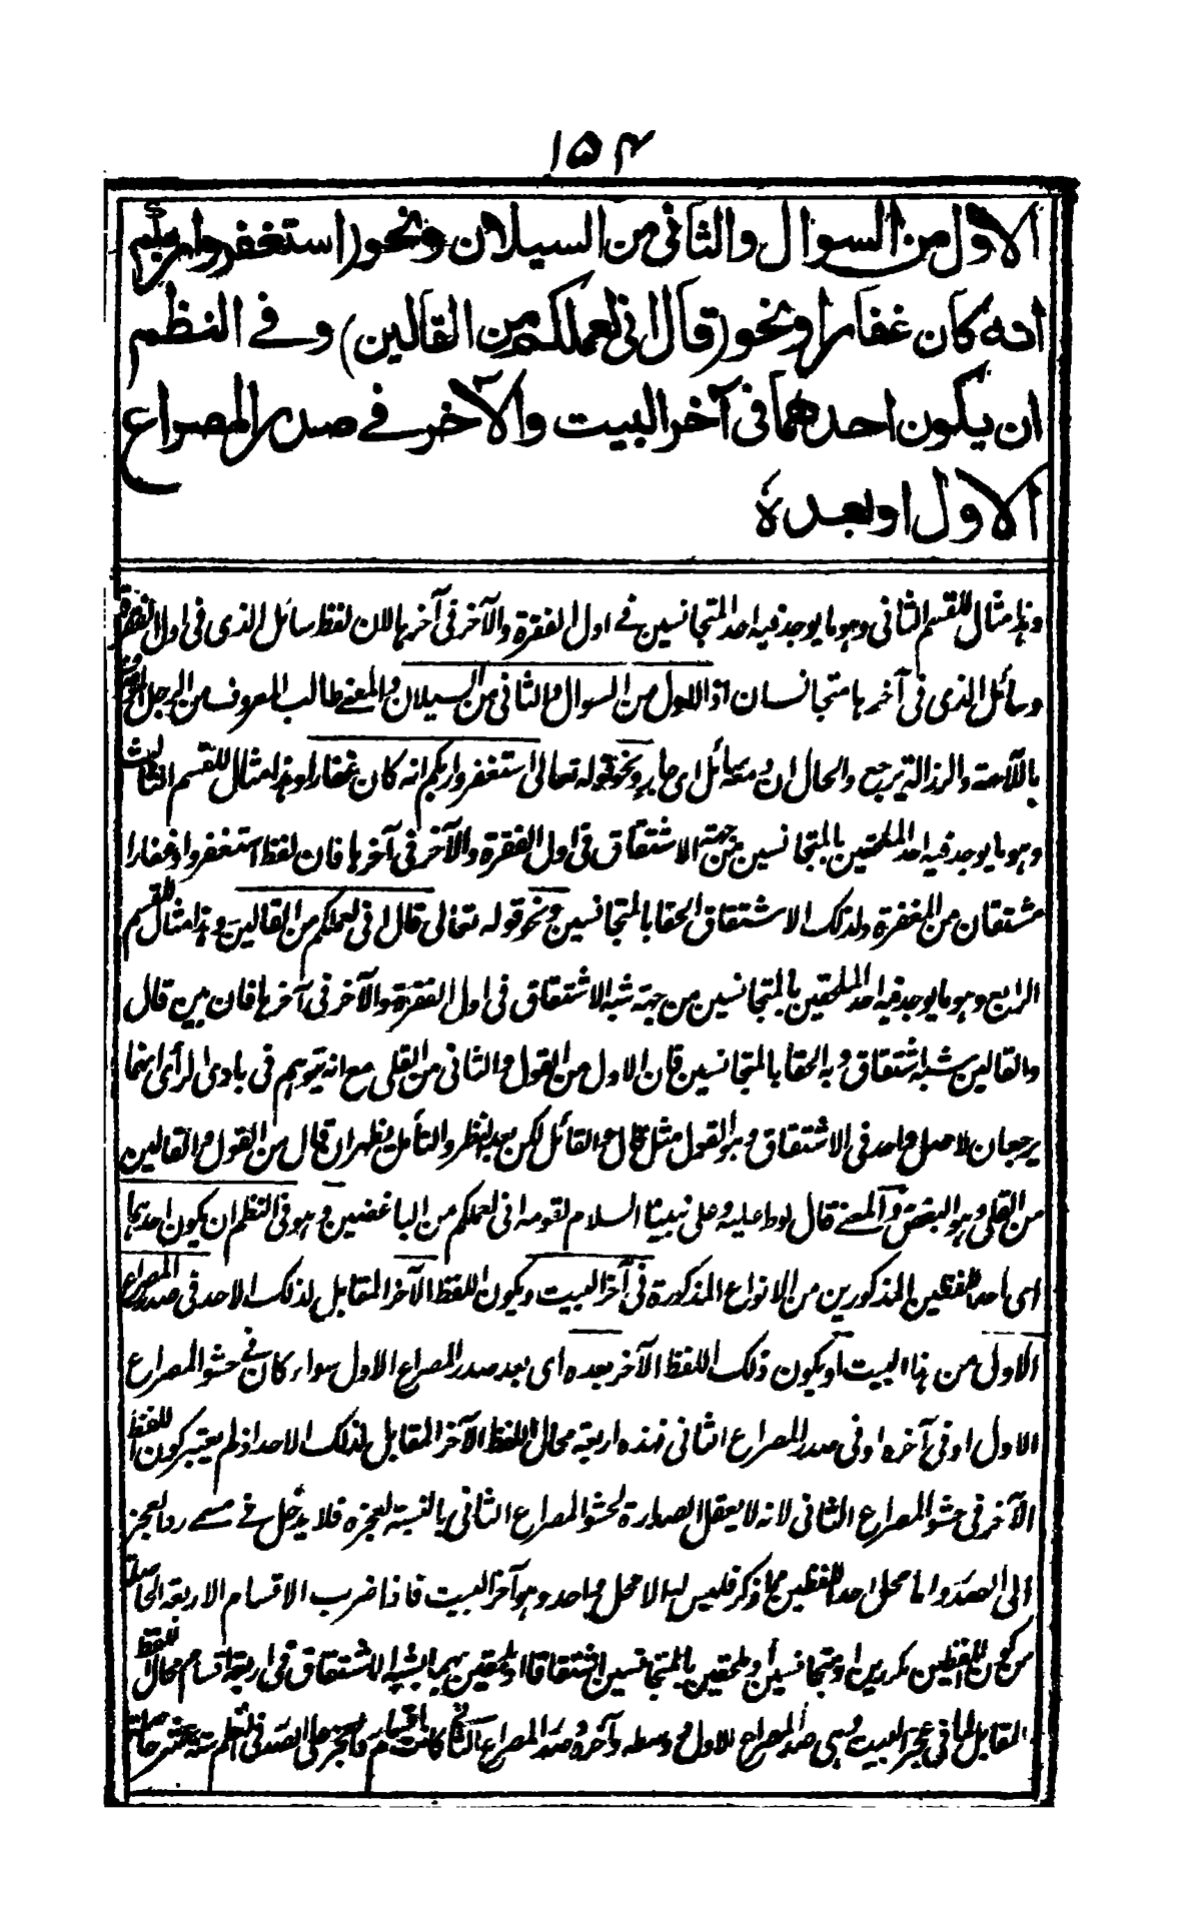 ١٥٤
الاول من السوال والثانى من السيلان ونحو (استغفروا ربكم
انه كان غفارا) ونحو (قال انى لعملكم من القالين) وفى النظم
ان يكون احدهما فى آخر البيت والآخر فى صدر المصراع
الاول او بعده
وهذا مثال للقسم الثانى وهو ما يوجد فيه احد المتجانسين فى اول الفقرة والآخر فى آخرها لان لفظ سائل الذى فى اول الفقرة
وسائل الذى فى آخرها متجانسان اذ الاول من السوال والثانى من السيلان والمعنى طالب المعروف من الرجل
باللآمة والرذالة يرجع والحال ان دمعه سائل اى جار ونحو قوله تعالى استغفروا ربكم انه كان غفارا وهذا مثال للقسم الثالث
وهو ما يوجد فيه احد الملحقين بالمتجانسين من جهة الاشتقاق فى اول الفقرة والآخر فى آخرها فان لفظ استغفروا وغفارا
مشتقان من المغفرة ولذلك الاشتقاق الحقا بالمتجانسين ونحو قوله تعالى قال انى لعملكم من القالين وهذا مثال للقسم
الرابع وهو ما يوجد فيه احد الملحقين بالمتجانسين من جهة شبه الاشتقاق فى اول الفقرة والآخر فى آخرها فان بين قال
والقالين شبه اشتقاق وبه الحقا بالمتجانسين فان الاول من القول والثانى من القلى مع انه يتوهم فى بادى الرأى انهما
يرجعان لاصل واحد فى الاشتقاق وهو القول مثل قال والقائل لكن بعد النظر والتأمل يظهر ان قال من القول والقالين
من القلى وهو البغض والمعنى قال لوط عليه وعلى نبينا السلام لقومه انى لعملكم من الباغضين وهو فى النظم ان يكون احدهما
اى احد اللفظين المذكورين من الانواع المذكورة فى آخر البيت ويكون اللفظ الآخر المقابل لذلك الاحد فى صدر المصراع
الاول من هذا البيت او يكون ذلك اللفظ الآخر بعده اى بعد صدر المصراع الاول سواء كان فى حشو المصراع
الاول او فى آخره او فى صدر المصراع الثانى فهذه اربعة محال اللفظ الآخر المقابل لذلك الاحد اذ لم يعتبر كون اللفظ
الآخر فى حشو المصراع الثانى لانه لا يعقل الصدارة لحشو المصراع الثانى بالنسبة لعجزه فلا يدخل فى مسمى رد العجز
الى الصدر واما محل احد اللفظين مما ذكر فليس لها الا محل واحد وهو آخر البيت فاذا ضرب الاقسام الاربعة الحاصلة
من كون اللفظين مكررين او متجانسين او ملحقين بالمتجانسين اشتقاقا او ملحقين بهما بشبه الاشتقاق فى اربعة اقسام محال اللفظ
المقابل لما فى عجز البيت وهى صدر المصراع الاول ووسطه وآخره وصدر المصراع الثانى كانت اقسام رد العجز على الصدر فى النظم ستة عشر حاصلة